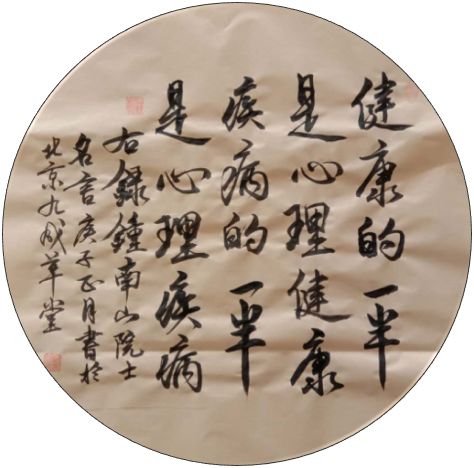 健康的一半
是心理健康
疾病的一半
是心理疾病
右录鍾南山院士
名言庚子正月書於
北京九成草堂